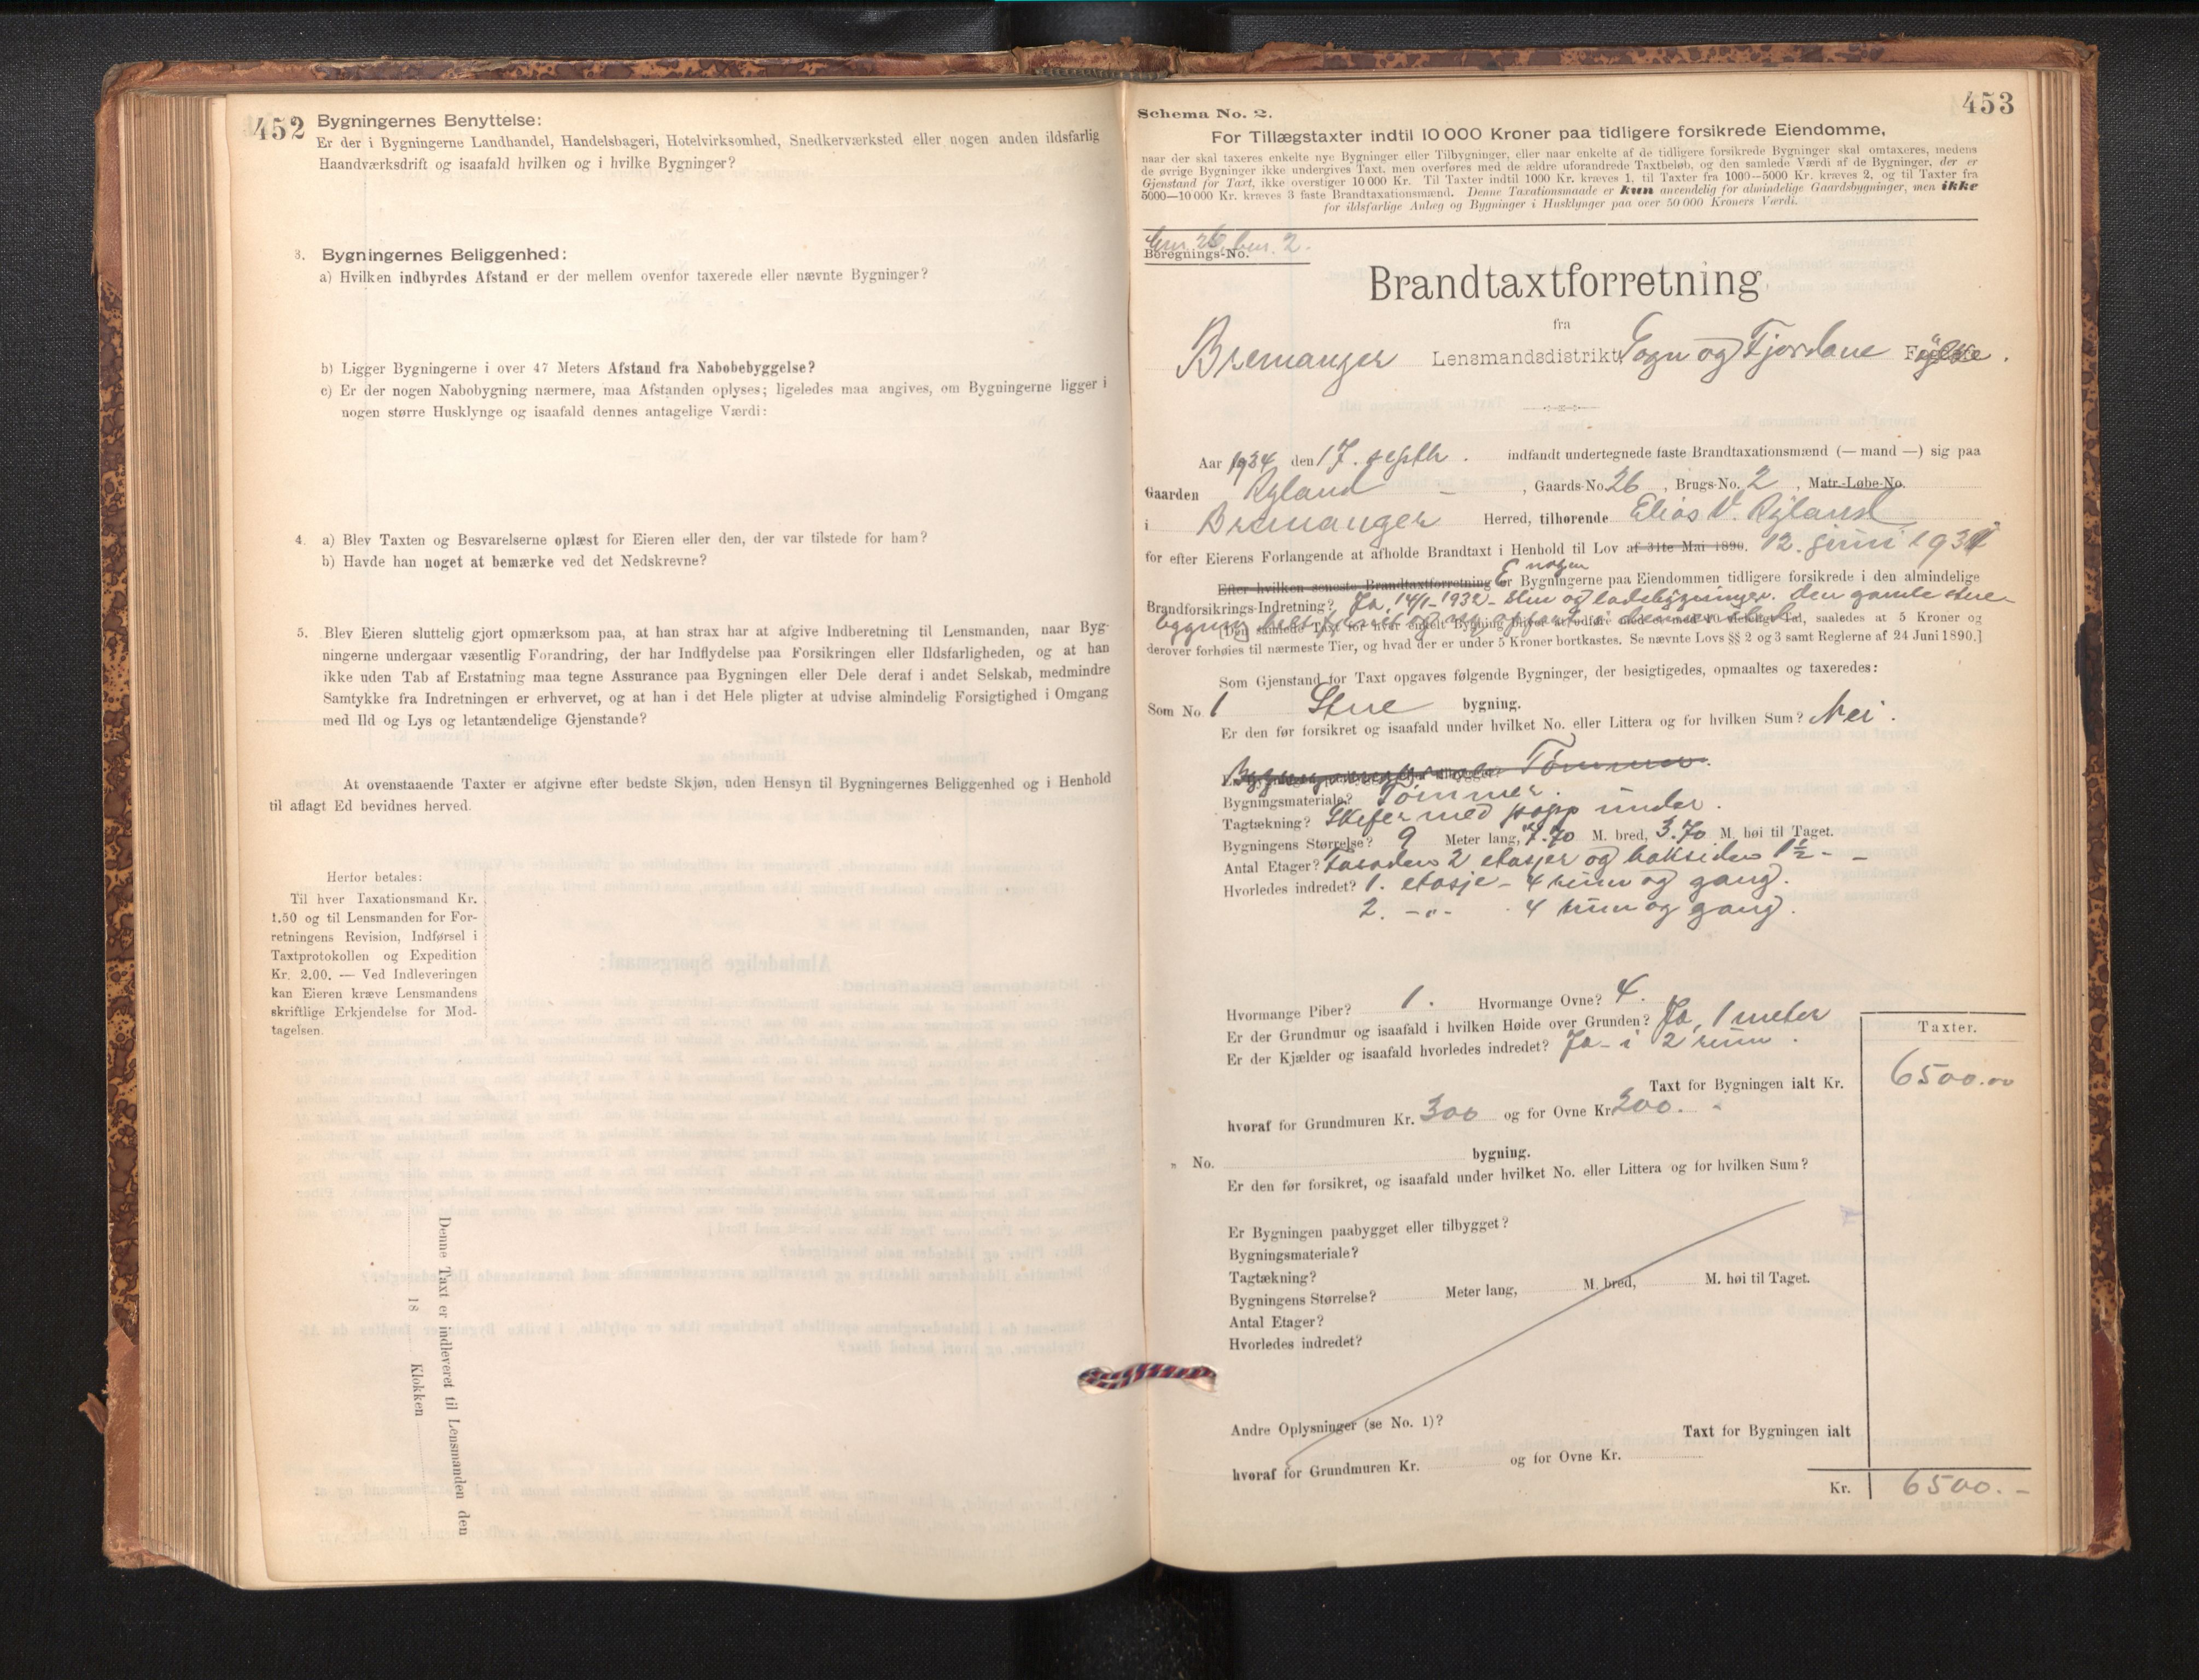 452
Bygningernes Benyttelse:
Er der i Bygningerne Landhandel, Handelsbageri, Hotelvirksomhed, Snedkerværksted eller nogen anden ildsfarlig
Haandværksdrift og isaafald hvilken og i hvilke Bygninger?
3. Bygningernes Beliggenhed:
a) Hvilken indbyrdes Afstand er der mellem ovenfor taxerede eller nævnte Bygninger?
b) Ligger Bygningerne i over 47 Meters Afstand fra Nabobebyggelse?
c) Er der nogen Nabobygning nærmere, maa Afstanden oplyses; ligeledes maa angives, om Bygningerne ligger i
nogen større Husklynge og isaafald dennes antagelige Værdi:
4. a) Blev Taxten og Besvarelserne oplæst for Eieren eller den, der var tilstede for ham?
b) Havde han noget at bemærke ved det Nedskrevne?
5. Blev Eieren sluttelig gjort opmærksom paa, at han strax har at afgive Indberetning til Lensmanden, naar Byg-
ningerne undergaar væsentlig Forandring, der har Indflydelse paa Forsikringen eller Ildsfarligheden, og at han
ikke uden Tab af Erstatning maa tegne Assurance paa Bygningen eller Dele deraf i andet Selskab, medmindre
Samtykke fra Indretningen er erhvervet, og at han i det Hele pligter at udvise almindelig Forsigtighed i Omgang
med Ild og Lys og letantændelige Gjenstande?
At ovenstaaende Taxter er afgivne efter bedste Skjøn, uden Hensyn til Bygningernes Beliggenhed og i Henhold
til aflagt Ed bevidnes herved.
Herfor betales:
Til hver Taxationsmand Kr.
1.50 og til Lensmanden for For-
retningens Revision, Indførsel i
Taxtprotokollen og Expedition
Kr. 2.00. — Ved Indleveringen
kan Eieren kræve Lensmandens
skriftlige Erkjendelse for Mod-
tagelsen.
Denne Taxt er indleveret til Lensmanden den
18 Klokken
453
Schema No. 2.
For Tillægstaxter indtil 10 000 Kroner paa tidligere forsikrede Eiendomme,
naar der skal taxeres enkelte nye Bygninger eller Tilbygninger, eller naar enkelte af de tidligere forsikrede Bygninger skal omtaxeres, medens
de øvrige Bygninger ikke undergives Taxt, men overføres med de ældre uforandrede Taxtbeløb, og den samlede Værdi af de Bygninger, der er
Gjenstand for Taxt, ikke overstiger 10 000 Kr. Til Taxter indtil 1000 Kr. kræves 1, til Taxter fra 1000—5000 Kr. kræves 2, og til Taxter fra
5000—10 000 Kr. kræves 3 faste Brandtaxationsmænd. Denne Taxationsmaade er kun anvendelig for almindelige Gaardsbygninger, men ikke
for ildsfarlige Anlæg og Bygninger i Husklynger paa over 50 000 Kroners Værdi.
Gnr. 26, bnr. 2.
Beregnings-No.
Brandtaxtforretning
fra
Bremanger Lensmandsdistrikt, Sogn og Fjordane Fylke.
Aar 1934 den 17. septb. indfandt undertegnede faste Brandtaxationsmænd (— mand —) sig paa
Gaarden Ryland , Gaards-No. 26 , Brugs-No. 2 , Matr.-Løbe-No.
i Bremanger Herred, tilhørende Elias V. Ryland
for efter Eierens Forlangende at afholde Brandtaxt i Henhold til Lov af 31te Mai 1890. 12. juni 1931
nogen
Efter hvilken seneste Brandtaxtforretning Er Bygningerne paa Eiendommen tidligere forsikrede i den almindelige
Brandforsikrings-Indretning? Ja, 14/1-1932 - stue og ladebygninger. Den gamle stue-
bygning
[Den samlede Taxt for hver enkelt Bygning bliver at udføre med et med 10 deleligt Tal, saaledes at 5 Kroner og
derover forhøies til nærmeste Tier, og hvad der er under 5 Kroner bortkastes. Se nævnte Lovs §§ 2 og 3 samt Reglerne af 24 Juni 1890.]
Som Gjenstand for Taxt opgaves følgende Bygninger, der besigtigedes, opmaaltes og taxeredes:
Som No. 1 Stue bygning.
Er den før forsikret og isaafald under hvilket No. eller Littera og for hvilken Sum? Nei.
Tømmer.
Bygningsmateriale? Tømmer.
Tagtækning? Skifer med papp under.
Bygningens Størrelse? 9 Meter lang, 7.70 M. bred, 3.70 M. høi til Taget.
Antal Etager? Fasaden 2 etasjer og baksiden 1½ - -
Hvorledes indredet? 1. etasje - 4 rum og gang.
2. -"- - 4 rum og gang.
Hvormange Piber? 1. Hvormange Ovne? 4.
Er der Grundmur og isaafald i hvilken Høide over Grunden? Ja, 1 meter
Er der Kjælder og isaafald hvorledes indredet? Ja - i 2 rum.
Taxter.
Taxt for Bygningen ialt Kr. 6500.00
hvoraf for Grundmuren Kr. 300 og for Ovne Kr. 200.-
„ No. bygning.
Er den før forsikret, og isaafald under hvilket No. eller Littera og for hvilken Sum?
Er Bygningen paabygget eller tilbygget?
Bygningsmateriale?
Tagtækning?
Bygningens Størrelse? Meter lang, M. bred, M. høi til Taget.
Antal Etager?
Hvorledes indredet?
Andre Oplysninger (se No. 1)? Taxt for Bygningen ialt
hvoraf for Grundmuren Kr. og for Ovne Kr.
Kr. 6500.-